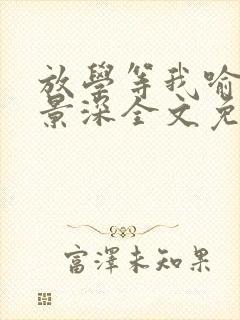 放學等我喻
景深全文免
富澤未知果